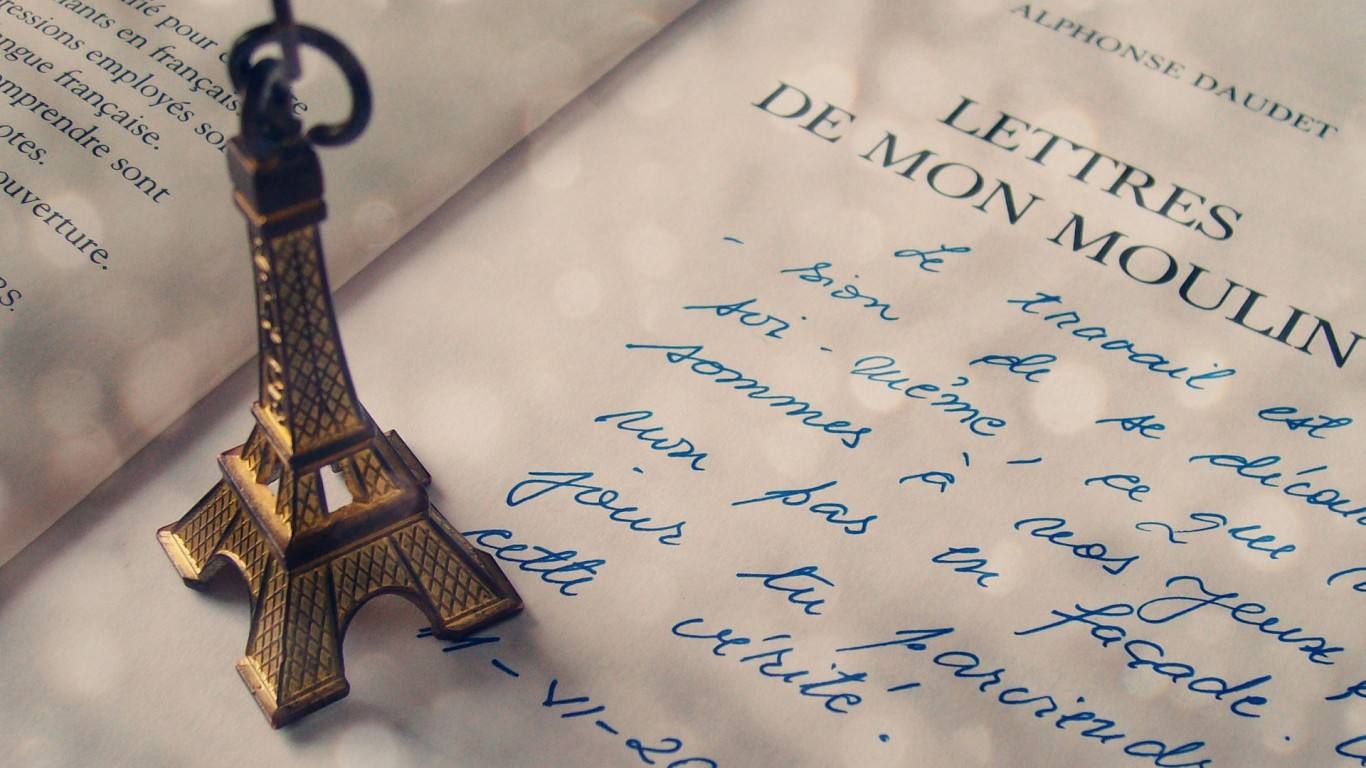 ié pour
ants en français
ressions employés so
ngue française.
omprendre sont
otes.
ouverture.
RS.
ALPHONSE DAUDET
LETTRES
DE MON MOULIN
- Le travail est
sion de se décou
soi-même, ce que
sommes à nos yeux
non pas en façade.
jour tu parviendr
cette vérité.
11-VI-20